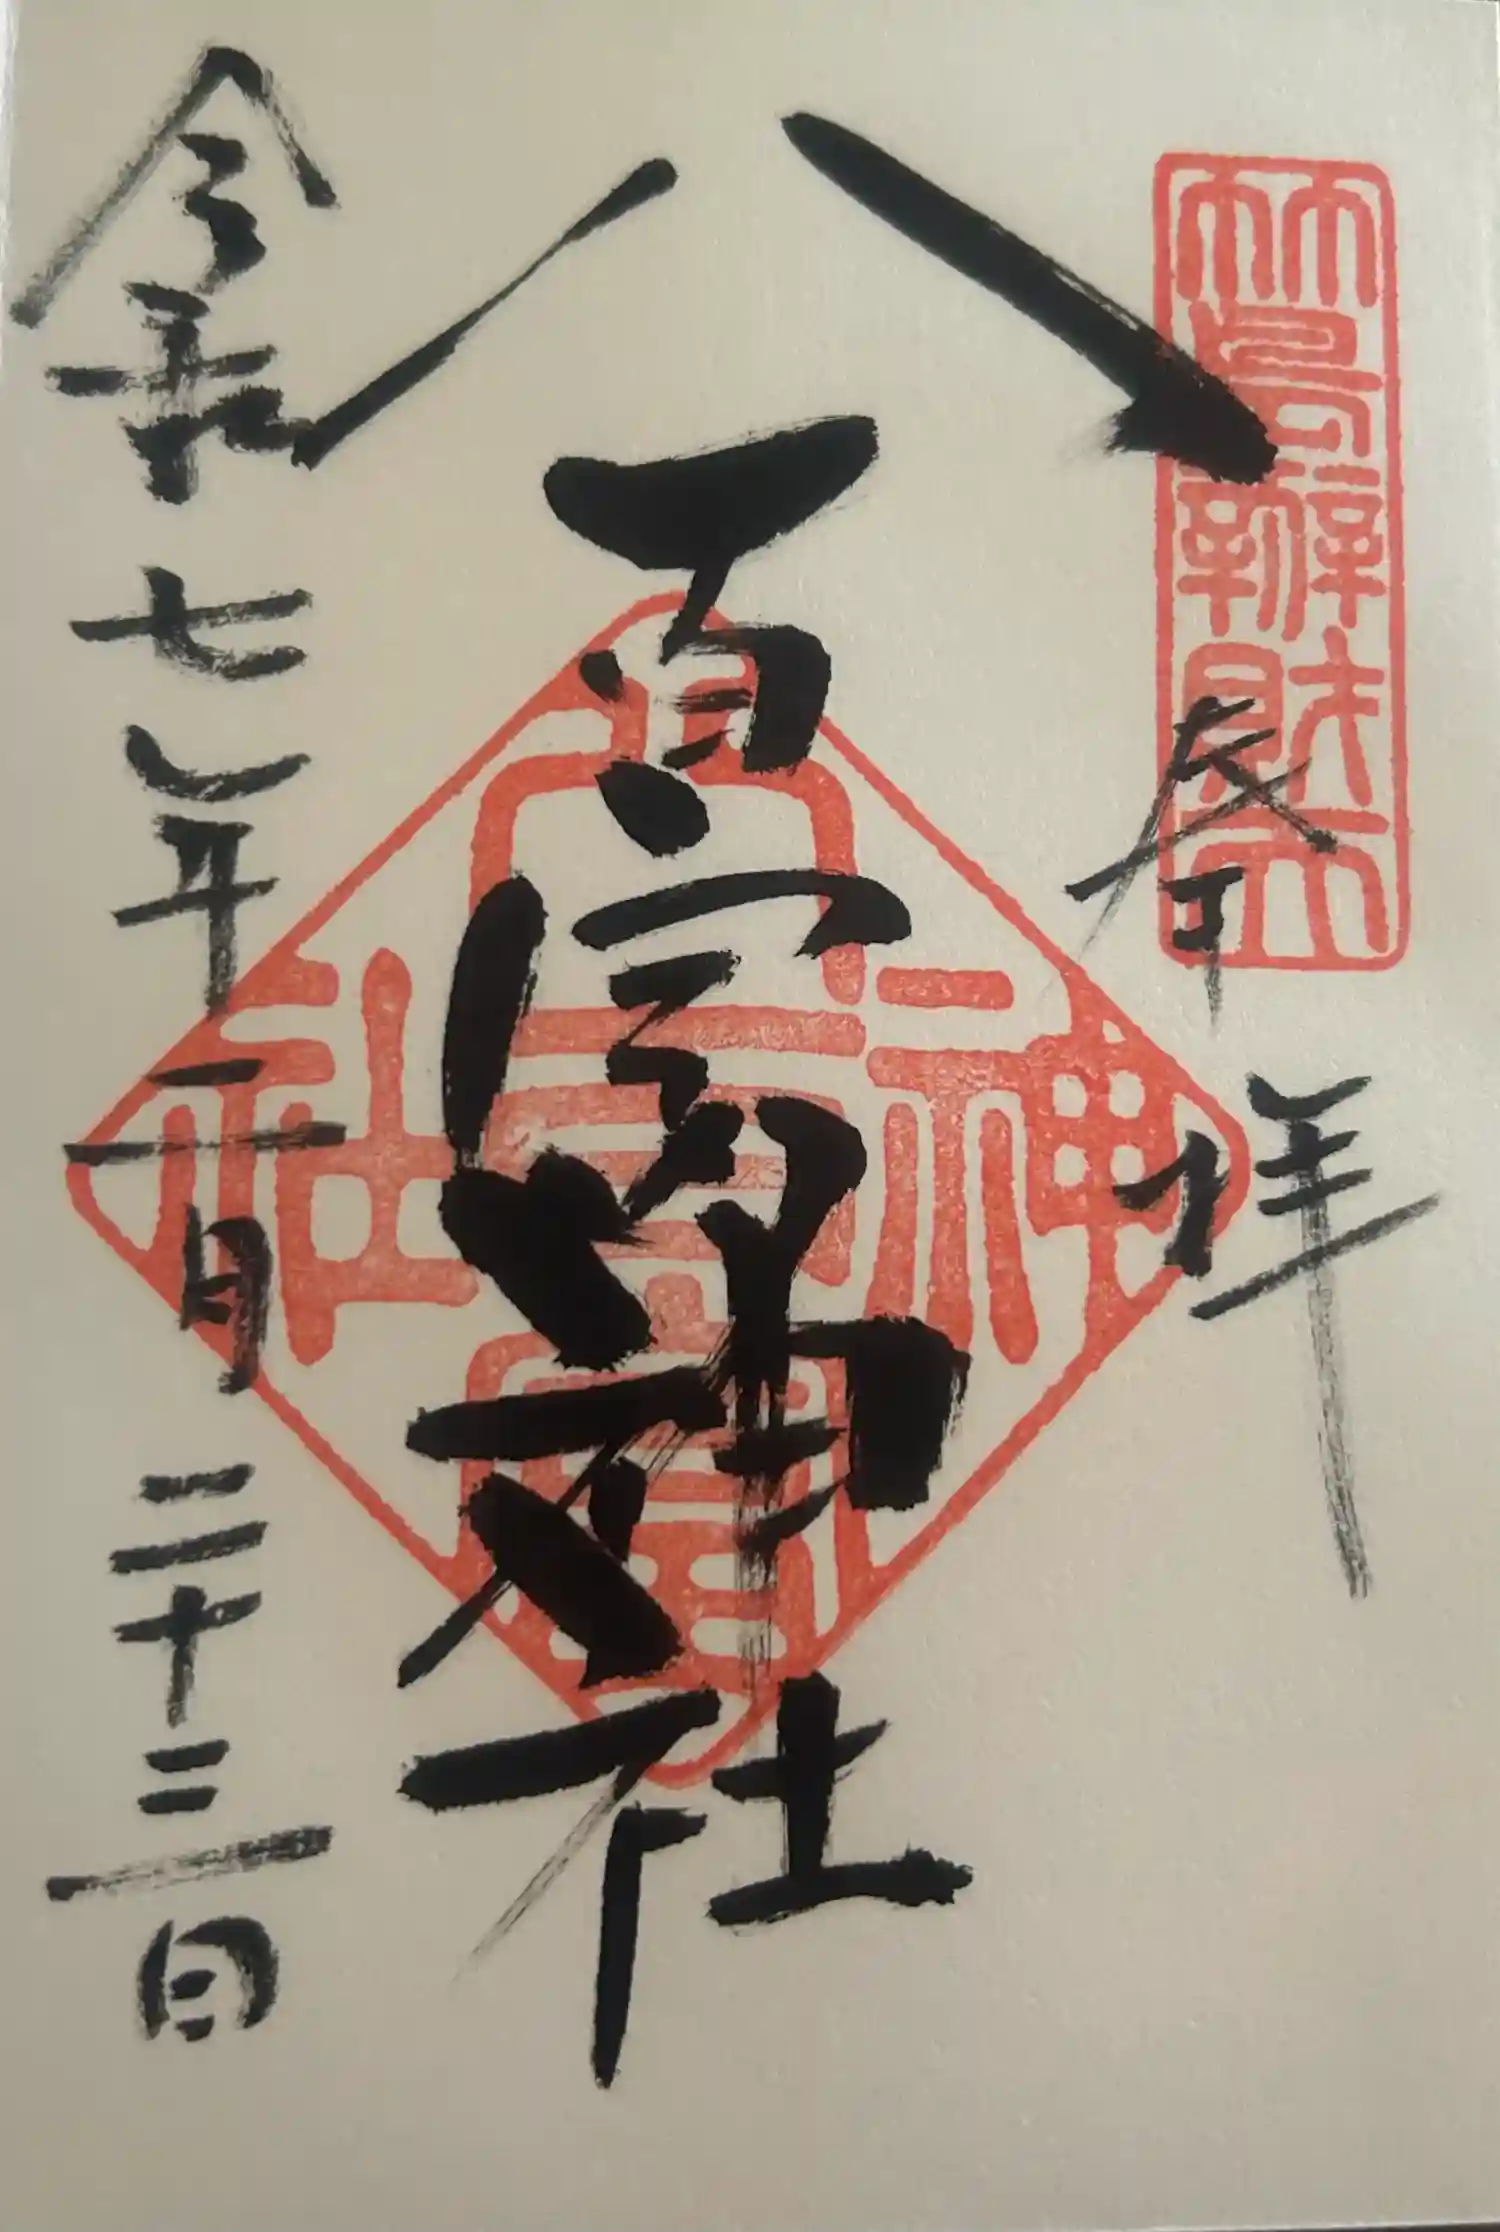 竹島辨財天
奉拝
八百富神社
八百富神社
令和七年二月二十三日